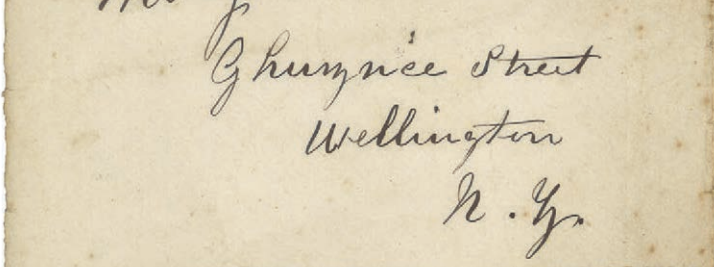 Ghuznee Street
Wellington
N. Z.